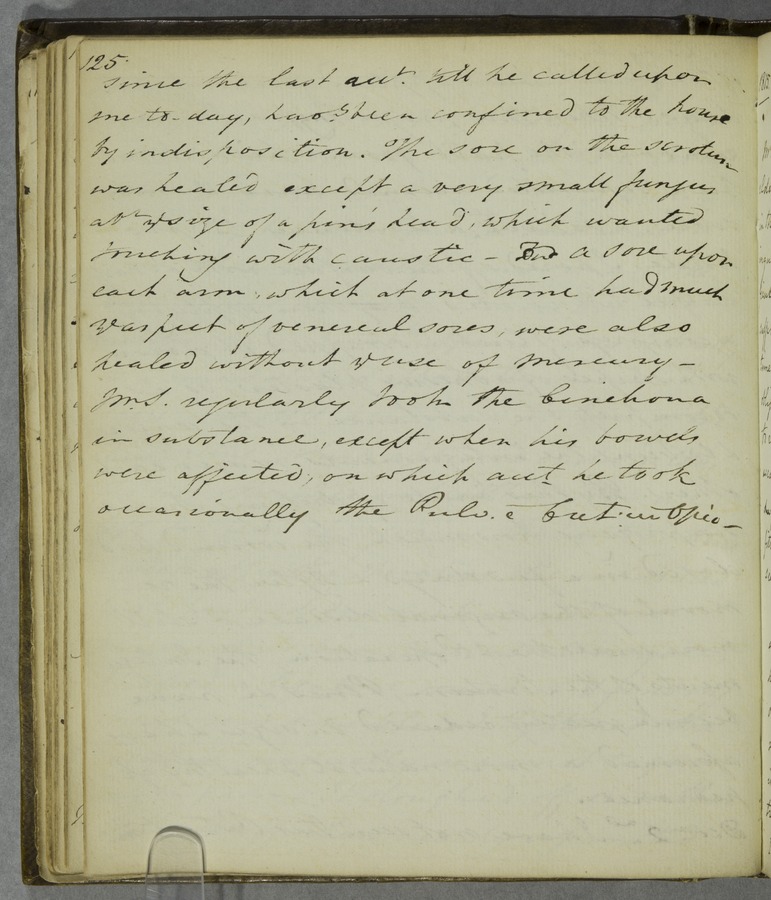 125.
since the last acct. till he called upon
me to-day, has been confined to the house
by indisposition. The sore on the scrotum
was healed except a very small fungus
abt ye size of a pin's head, which wanted
touching with caustic - a sore upon
each arm, which at one time had much
ye aspect of venereal sores, were also
healed without ye use of mercury -
Mr. S. regularly took the Cinchona
in substance, except when his bowels
were affected, on which acct. he took
occasionally the Pulv. e Cret. cum Opio -